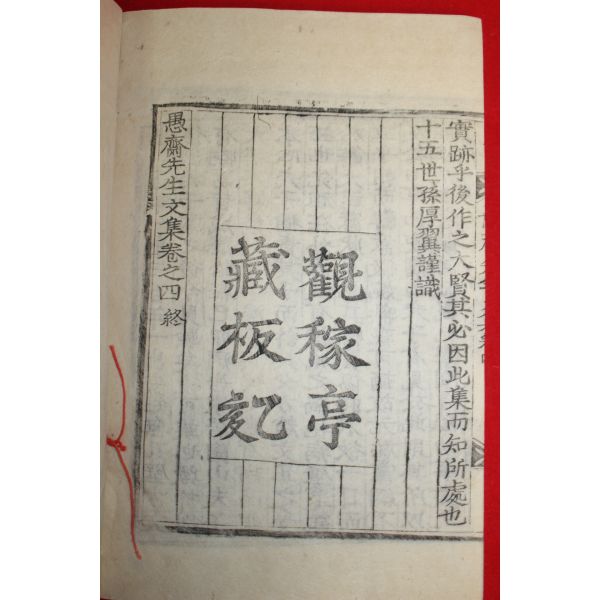 實跡乎後作之大賢其必因此集而知所處也
十五世孫厚翼謹識
觀稼亭
藏板乙亥
愚齋先生文集卷之四 終